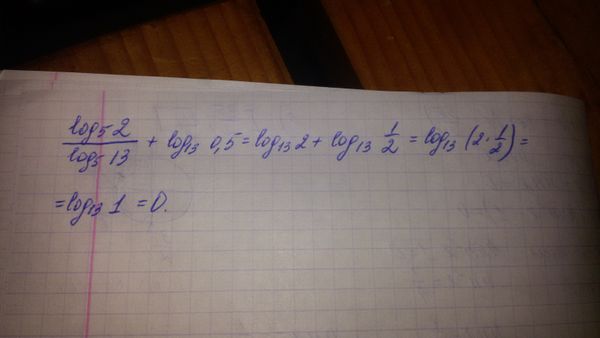 log₅2/log₅13 + log₁₃ 0,5 = log₁₃2 + log₁₃ 1/2 = log₁₃ (2·1/2) =
= log₁₃ 1 = 0.